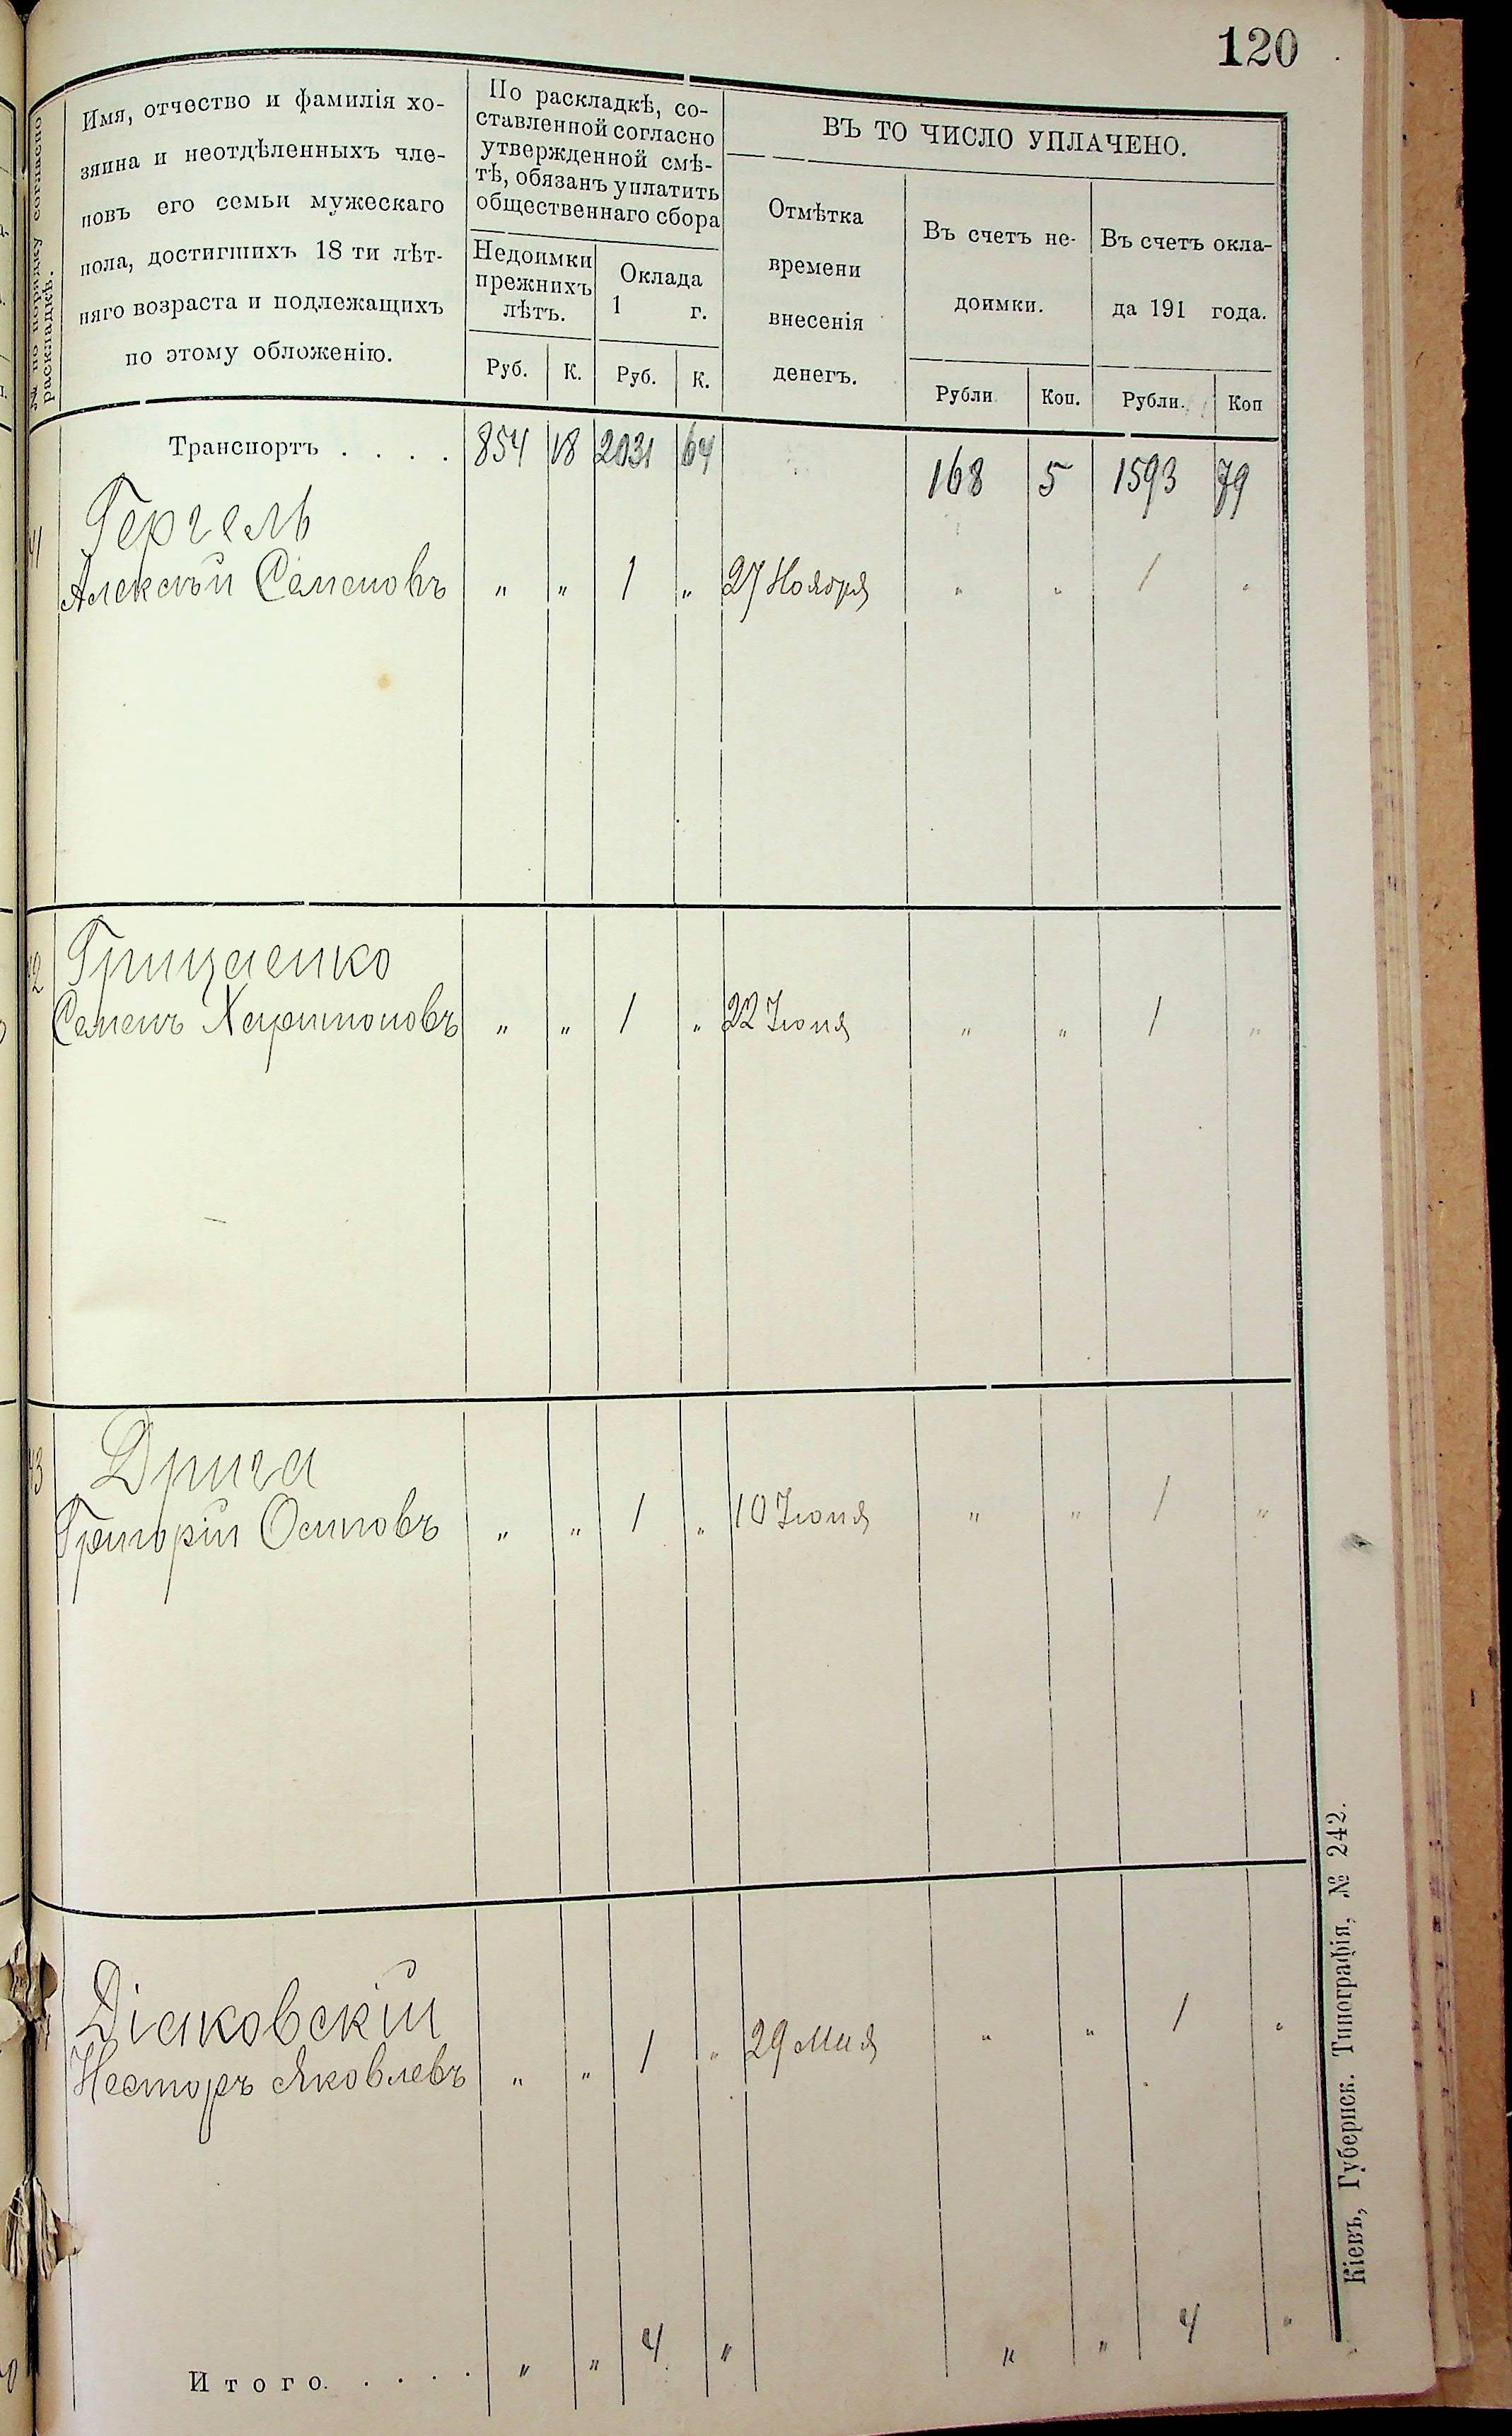 120
№ по порядку согласно
раскладкѣ.
Имя, отчество и фамилія хо-
зяина и неотдѣленныхъ чле-
новъ его семьи мужескаго
пола, достигшихъ 18 ти лѣт-
няго возраста и подлежащихъ
по этому обложенію.
По раскладкѣ, со-
ставленной согласно
утвержденной смѣ-
тѣ, обязанъ уплатить
общественнаго сбора
Недоимки
прежнихъ
лѣтъ.
Оклада
1 г.
Руб. К. Руб. К.
ВЪ ТО ЧИСЛО УПЛАЧЕНО.
Отмѣтка
времени
внесенія
денегъ.
Въ счетъ не-
доимки.
Въ счетъ окла-
да 191 года.
Рубли Коп. Рубли. Коп
Транспортъ . . . . 854 18 2031 64 168 5 1593 79
Гергель
Алексѣй Семеновъ " " 1 " 27 Ноября " " 1 "
2 Грицаенко
Семенъ Харитоновъ " " 1 " 22 Іюня " " 1 "
3 Дрига
Григорій Осиповъ " " 1 " 10 Іюня " " 1 "
Діаковскій
Несторъ Яковлевъ " " 1 " 29 Мая " " 1 "
Итого. . . . . " " 4 " " " 4 "
Кіевъ, Губернск. Типографія, № 242.